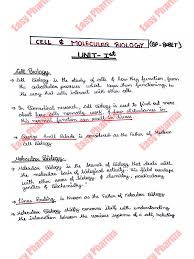 CELL & MOLECULAR BIOLOGY (BP-808ET)
UNIT- Ist
Cell Biology
→ Cell Biology is the study of cells & how they function, from
the subcellular processes which keep them functioning, to
the way that cells interact with other cells.
→ In Biomedical research, Cell Biology is used to find out more
about how cells normally work, & how disturbances in
this normal function can result in disease
→ George Emil Palade is considered as the Father of Modern
Cell Biology
Molecular Biology
→ Molecular Biology is the branch of Biology that deals with
the molecular basis of biological activity. This field overlaps
with other areas of biology & chemistry, particularly
genetics & Biochemistry.
→ Linus Pauling is known as the Father of Molecular Biology
→ Molecular Biology chiefly concerns itself with understanding
the interaction between the various systems of a cell, including
Easy Pharma
Easy Pharma
Easy Pharma
Easy Pharma